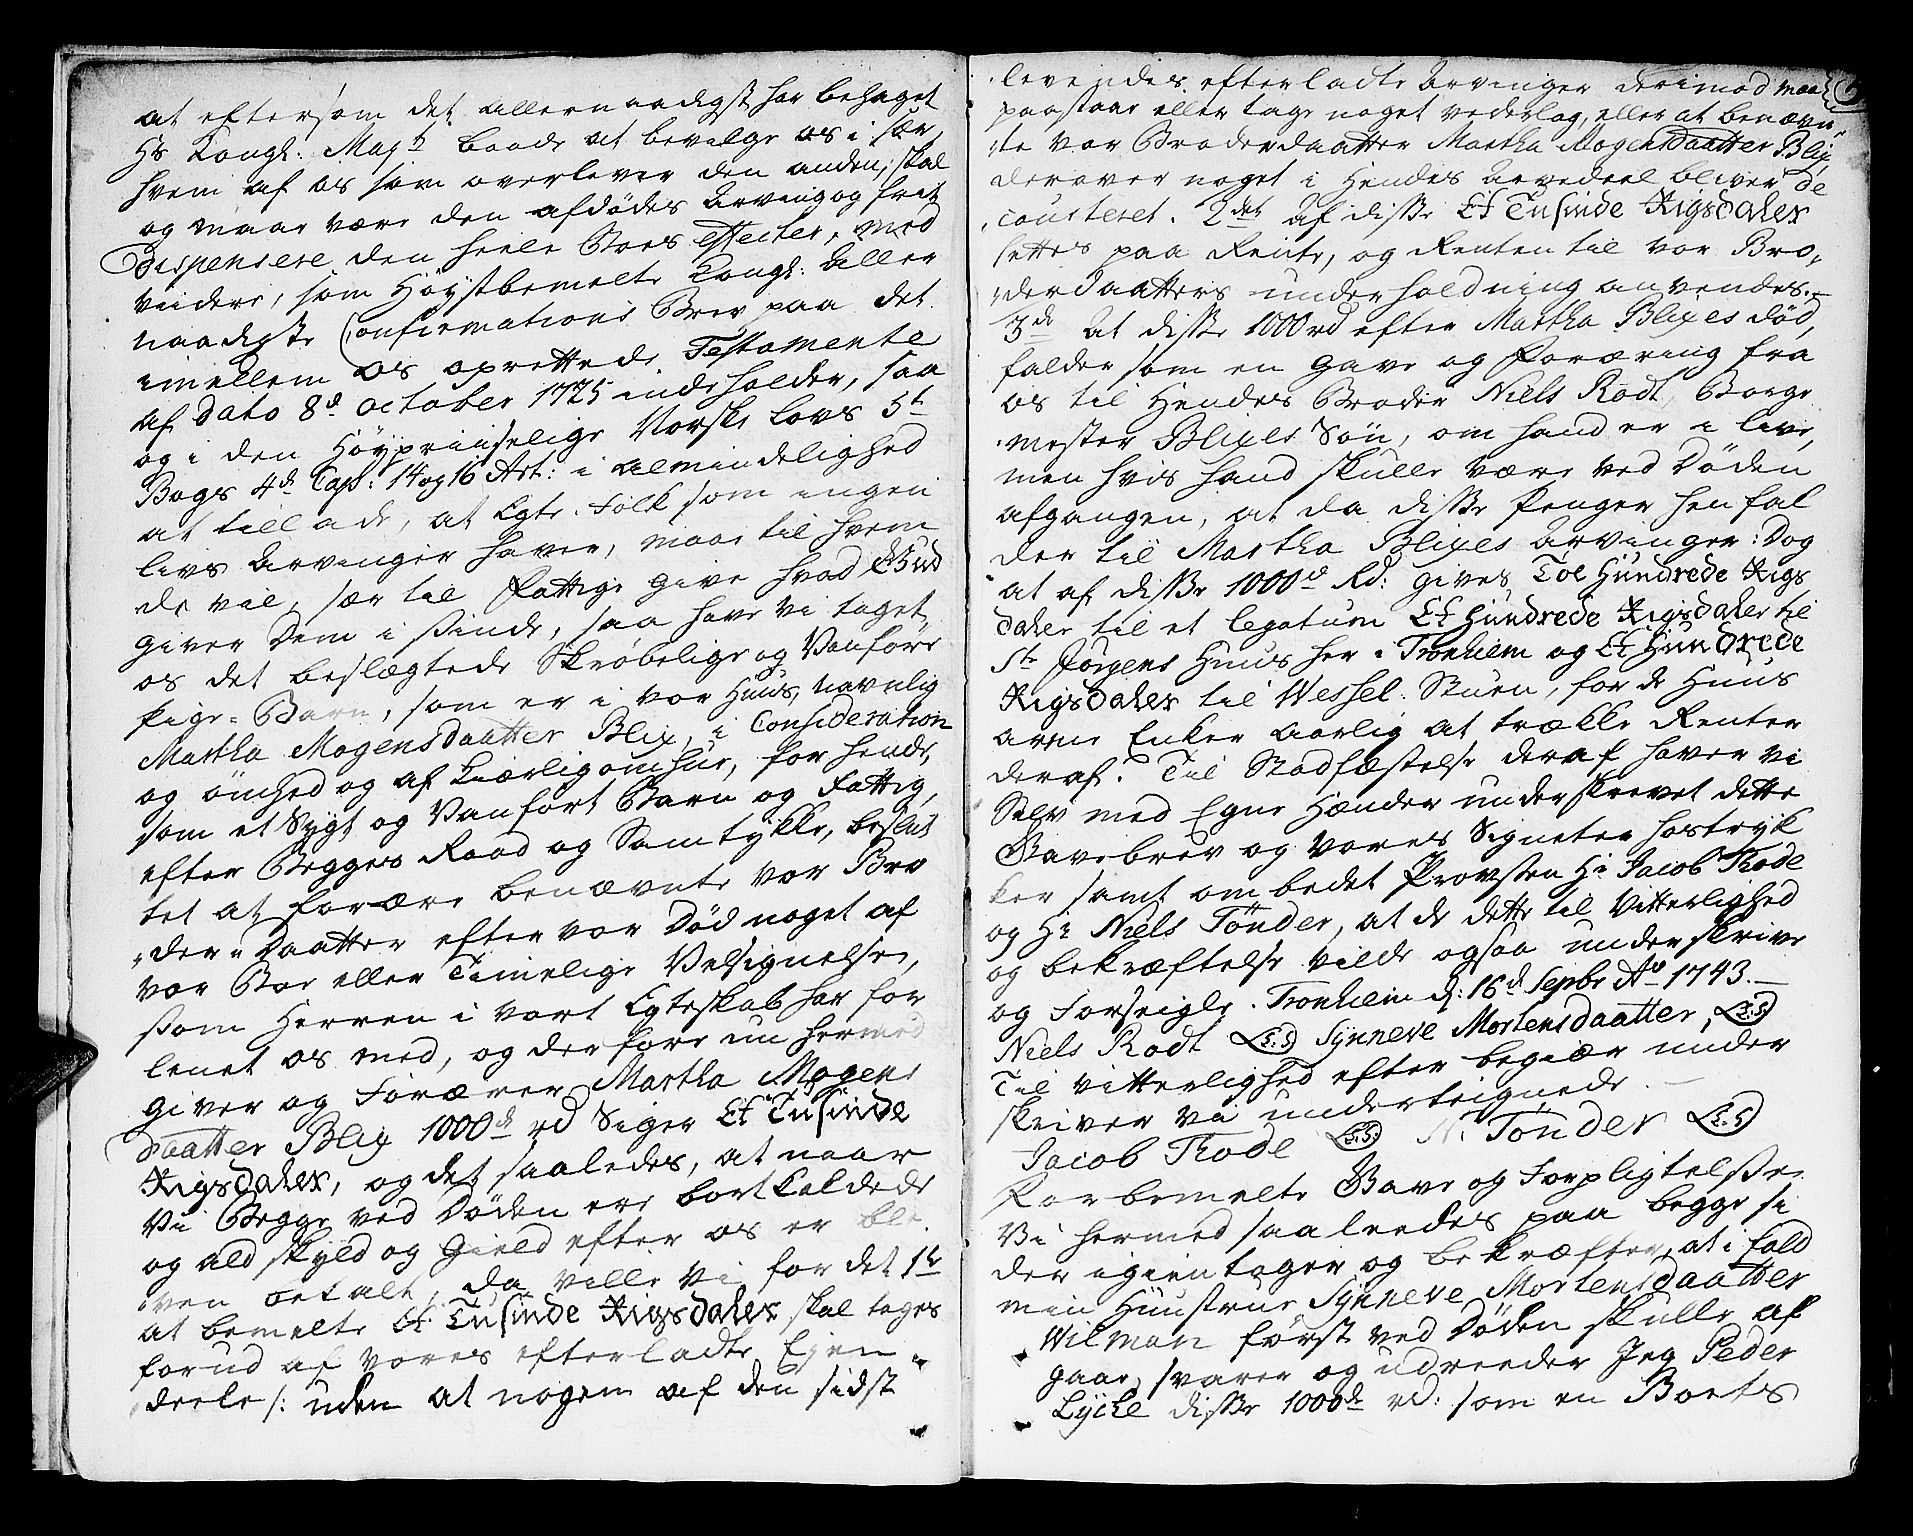 at eftersom det allernaadigst har behaget
Hs Kongl: Maytt baade at bevilge os i sær,
hvem af os som overlever den anden, skal
og maae være den afdødes Arving og frit
dispensere den heele Boes effecter, med
viidere, som Höystbemelte Kongl: Aller
naadigste Confirmations Brev paa det
imellem os oprettede Testamente
af Dato 8de October 1725 indeholder, saa
og i den Höypriiselige Norske Lovs 5te
Bogs 4de Cap: 14 og 16 Art: i almindelighed
at tillade, at Egte-Folk som ingen
livs Arvinger haver, maae til hvem
de vil, sær til Fattige give hvad Gud
giver Dem i Sinde, saa have vi taget
os det beslægtede Skrøbelige og Vanføre
Pige-Barn, som er i vor Huus, navnlig
Martha Mogensdaatter Blix, i Consideration
og ömhed og af Kiærlig omhue, for hende,
som et Sygt og Vanført Barn og Fattig,
efter Begges Raad og Samtykke, beslut
tet at forære benævnte vor Bro
der-Daatter efter vor Död noget af
vor Boe eller Timelige Velsignelse,
som Herren i vort Egteskab har for
lenet os med, og derfore nu hermed
giver og Forærer Martha Mogens
daatter Blix 1000de rd Siger Et Tusinde
Rigsdaler, og det saaledes, at naar
Vi Begge ved Döden ere bortkaldede
og ald skyld og Gield efter os er ble
ven betalt, da ville vi for det 1te
at bemelte Et Tusinde Rigsdaler skal tages
forud af vores efterladte Ejen-
deele /: uden at nogen af den sidst
levendes efterladte Arvinger derimod maae
paastaae eller tage noget vederlag, eller at benævn-
te vor Broderdaatter Martha Mogensdaatter Blix
derover noget i Hendes Arvedeel bliver de
courteret. 2det Af disse Et Tusinde Rigsdaler
settes paa Rente, og Renten til vor Bro-
derdaatters underholdning anvendes.
3de At disse 1000 rd efter Martha Blixes död,
falder som en Gave og Foræring fra
os til Hendes Broder Niels Rodt, Borge
mester Blixes Sön, om hand er i live,
men hvis hand skulle være ved Döden
afgangen, at da disse Penger henfal
der til Martha Blixes Arvinger: Dog
at af disse 1000de Rd: gives Toe Hundrede Rigs
daler til et legatum Et Hundrede Rigsdaler til
Ste Jörgens Huus her i Tronhiem og Et Hundrede
Rigsdaler til Wessel-Stuen, for de Huus
arme Enker aarlig at trække Renter
deraf. Til Stadfæstelse deraf haver vi
Selv med Egne Hænder underskrevet dette
Gavebrev og vores Signeter hostryk
ker samt ombedet Provsten Hr Jacob Rode
og Hr Niels Tönder, at de dette til Vitterlighed
og bekræftelse vilde ogsaa underskrive
og Forseigle. Tronhiem d: 16de Sepbr Ao 1743.
Niels Rodt (L.S.) Synneve Mortensdaatter, (L.S.)
Til vitterlighed efter begiær under
skriver vi underteignede
Jacob Rode (L.S.) N. Tönder (L.S.)
Forbemelte Gave og Forpligtelse
Vi hermed saaleedes paa begge si
der igientager og bekræfter, at i fald
min Hüustrue Synneve Mortensdaatter
Wilman först ved Döden skulle af
gaae, svarer og udreeder Jeg Peder
Lycke disse 1000de rd: som en Boets